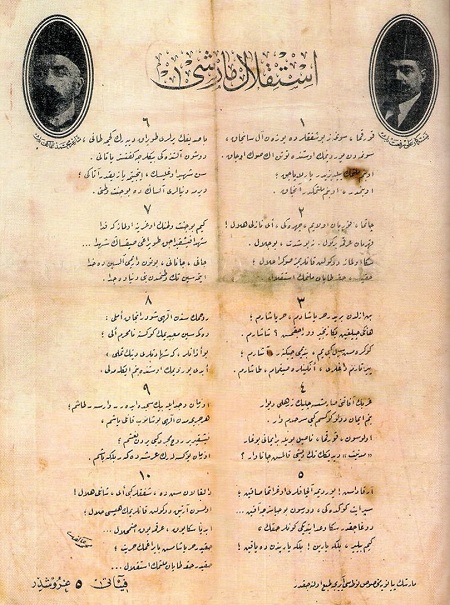 استقلال مارشی
١
قورقما، سونمز بو شفقلرده یوزن آل سانجاق،
سونمه‌دن یوردیمك اوستنده توتن اك صوك اوجاق.
او بنم ملتمك ییلدیزیدر پارلایاجق؛
او بنمدر، او بنم ملتمكدر آنجاق.
٢
چاتما، قربان اولایم، چهره‌كی، ای نازلی هلال!
قهرمان عرقمه بر كول.. نه بو شدت، بو جلال؟
سكا اولماز دوكولن قانلریمز صوكرا حلال؛
حقیدر، حقه طاپان ملتمك استقلال.
٣
بن ازلدن بریدر حر یاشادم، حر یاشارم؛
هانكی چیلغین بكا زنجیر ووراجقمش؟ شاشارم!
كوكره‌مش سیل كبی یم، بندیمی چیكنر، آشارم؛
ییرتارم طاغلری، انكینلره صیغمام، طاشارم.
٤
غربك آفاقنی صارمشسه چلیك زرهلی دیوار
بنم ایمان دولو كوكسم كبی سرحدم وار.
اولوسون، قورقما، ناصل بویله بر ایمانی بوغار
«مدنیت» دیدیكك تك دیشی قالمش جاناوار؟
٥
آرقاداش! یوردیمه آلچاقلری اوغراتما صاقین؛
سپر ایت كوكده‌كی، دورسون بو حیاسزجه آقین.
دوغاجقدر سكا وعد ایتدیكی كونلر حقك؛
كیم بیلیر، بلكه یارین! بلكه یاریندن ده یاقین!
٦
باصدیغك یرلری طوپراق دییه‌رك كچمه، طانی،
دوشون آلتنده‌كی بیكلرجه كفنسز یاتانی.
سن شهید اوغلیسك، اینجیتمه یازیقدر آتاكی؛
ویرمه دنیالری آلسه‌ك ده بو جنت وطنی.
٧
كیم بو جنت وطنك اوغرینه اولماز كه فدا؟
شهدا فیشقیراجق طوپراغی صیقسه‌ك شهدا..
جانی، جانانی، بوتون واریمی آلسین ده خدا
ایتمه‌سین تك وطنمدن بنی دنیاده جدا.
٨
روحمك سندن الهی شودر آنجاق املی:
دكمه‌سین معبدیمك كوكسنه نامحرم الی؛
بو اذانلر، كه شهادتلری دینك تملی،
ابدی یوردیمك اوستنده بنم ایكله‌ملی
٩
او زمان وجد ایله بیك سجده ایدر وارسه طاشم؛
هر جریحه‌مدن الهی بوشانوب قانلی یاشم،
فیشقیرر روح مجرد كبی یردن نعشم؛
او زمان یوكسله‌رك عرشه دكر بلكه باشم.
١٠
دالغالان سن ده، شفقلر كبی، ای شانلی هلال!
اولسون آرتق دوكولن قانلریمك هپسی حلال؛
ابدیا سكا یوق، عرقمه یوق اضمحلال..
حقیدر حر یاشامش بایراغمك حریت؛
حقیدر حقه طاپان ملتمك استقلال..
فیئاتی ٥ غروشدر